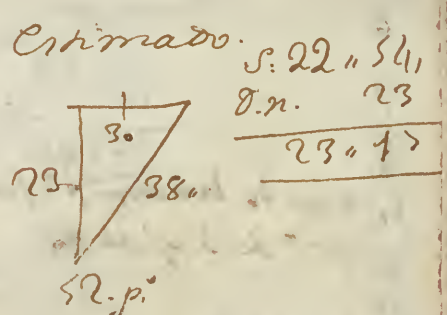 Estimado.
S. 22 „ 54,
D. n. 23
23 „ 17
30
23
38 „
52. p.º